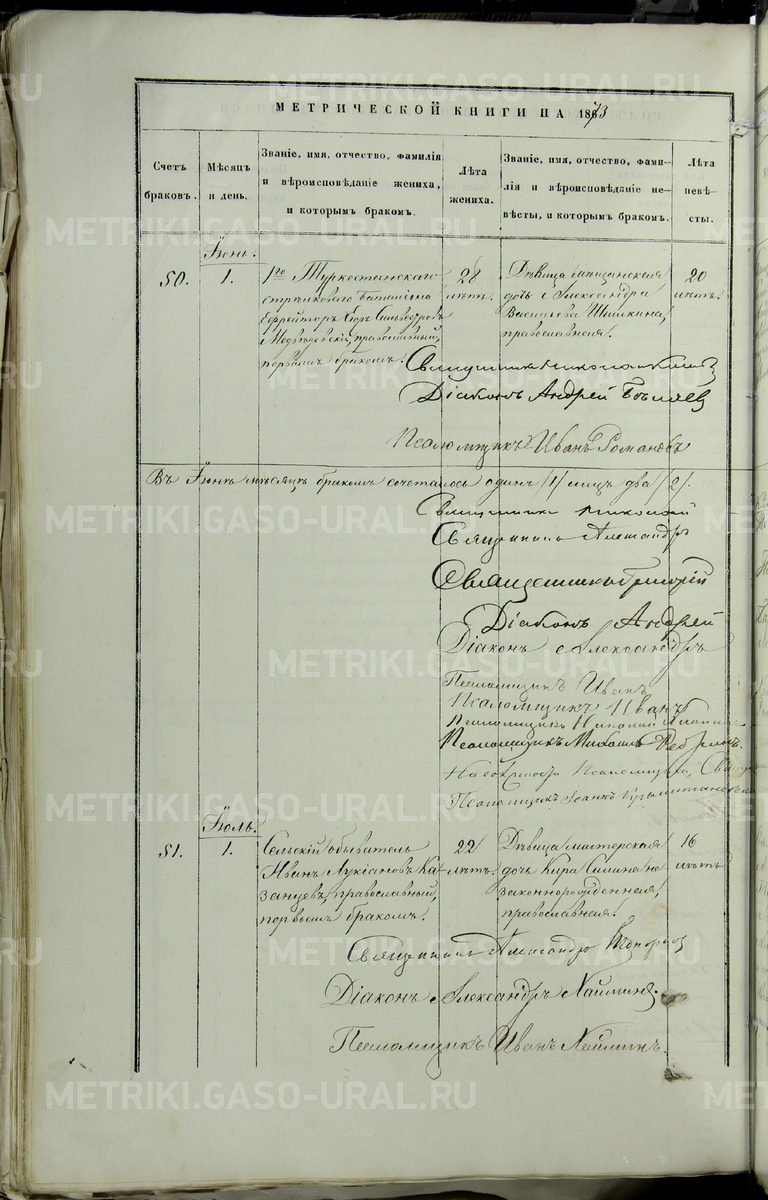 МЕТРИЧЕСКОЙ КНИГИ НА 1873
Счетъ браковъ.
Мѣсяцъ и день.
Званіе, имя, отчество, фамилія
и вѣроисповѣданіе жениха,
и которымъ бракомъ.
Лѣта жениха.
Званіе, имя, отчество, фами-
лія и вѣроисповѣданіе не-
вѣсты, и которымъ бракомъ.
Лѣта невѣ-
сты.
Іюнь.
50.
1.
1го Туркестанскаго
стрѣлковаго баталіона
Ефрейторъ Сильвестровъ
Медвѣдевскій, православный,
первымъ бракомъ.
28
лѣтъ.
Дѣвица мѣщанская
дочь Александра
Васильева Шишкина,
православная.
20
лѣтъ.
Священникъ Николай
Діаконъ Андрей Бѣляевъ
Псаломщикъ Иванъ Романовъ
Въ Іюнѣ мѣсяцѣ бракомъ сочеталось одинъ /1/ лицъ два /2/.
Священникъ Николай
Священникъ Александръ
Священникъ Григорій
Діаконъ Андрей
Діаконъ Александръ
Псаломщикъ Иванъ
Псаломщикъ Иванъ
Псаломщикъ Николай
Псаломщикъ Михаилъ Ребринъ.
Псаломщикъ
Псаломщикъ
Іюль.
51.
1.
Сельскій обыватель
Иванъ Лукіановъ Ка-
занцевъ, православный,
первымъ бракомъ.
22
лѣтъ.
Дѣвица мастерская
дочь Кира Силина не
законнорожденная,
православная.
16
лѣтъ
Священникъ Александръ Топорковъ
Діаконъ Александръ Наймин
Псаломщикъ Иванъ Наймин
METRIKI.GASO-URAL.RU